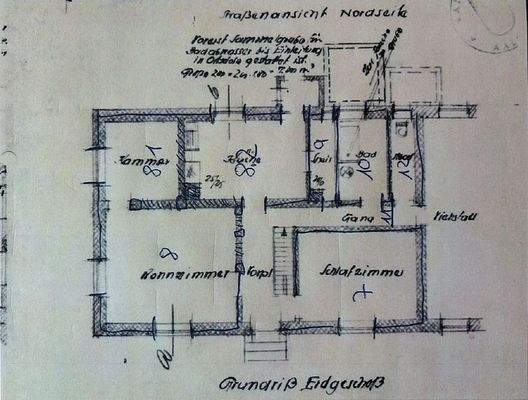 Straßenansicht Nordseite
Vorerst Sammelgrube für
Badabwasser bis Einleitung
in Ortskan. gestattet ist.
Kammer
8 1
Küche
8 2
25/25
Speis
9
Bad
10
12
Gang
11
Viehstall
8
Wohnzimmer
Vorpl
Schlafzimmer
7
Grundriß Erdgeschoß